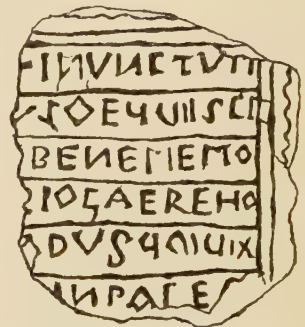 INUNCTVM
SOEQVIISCI
BENEMEMO
IOGAEREHO
DVSQVIVIX
INPACE